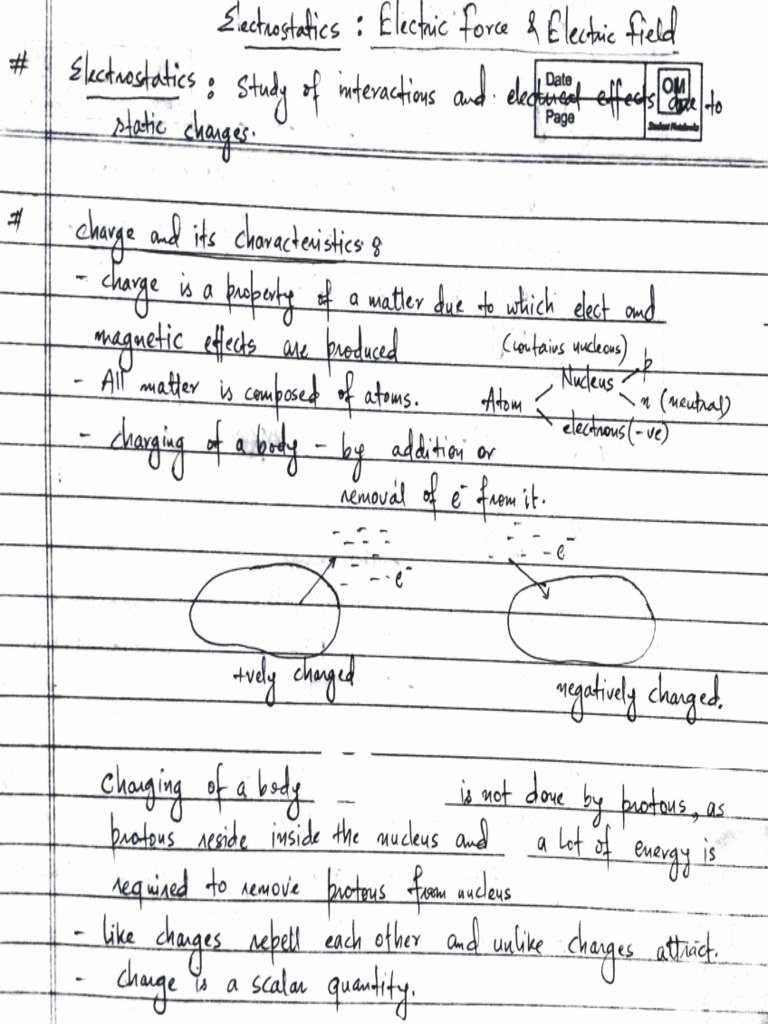 Electrostatics : Electric force & Electric field
# Electrostatics : Study of interactions and electrical effects due to
static charges.
Date
Page
OM
Student Notebooks
# Charge and its characteristics :
- charge is a property of a matter due to which elect and
magnetic effects are produced
- All matter is composed of atoms.
(contains nucleons)
Atom
Nucleus
p
n (neutral)
electrons (-ve)
- charging of a body - by addition or
removal of e⁻ from it.
e⁻
e⁻
+vely charged
negatively charged.
Charging of a body _ is not done by protons, as
protons reside inside the nucleus and a lot of energy is
required to remove protons from nucleus
- like charges repell each other and unlike charges attract.
- charge is a scalar quantity.